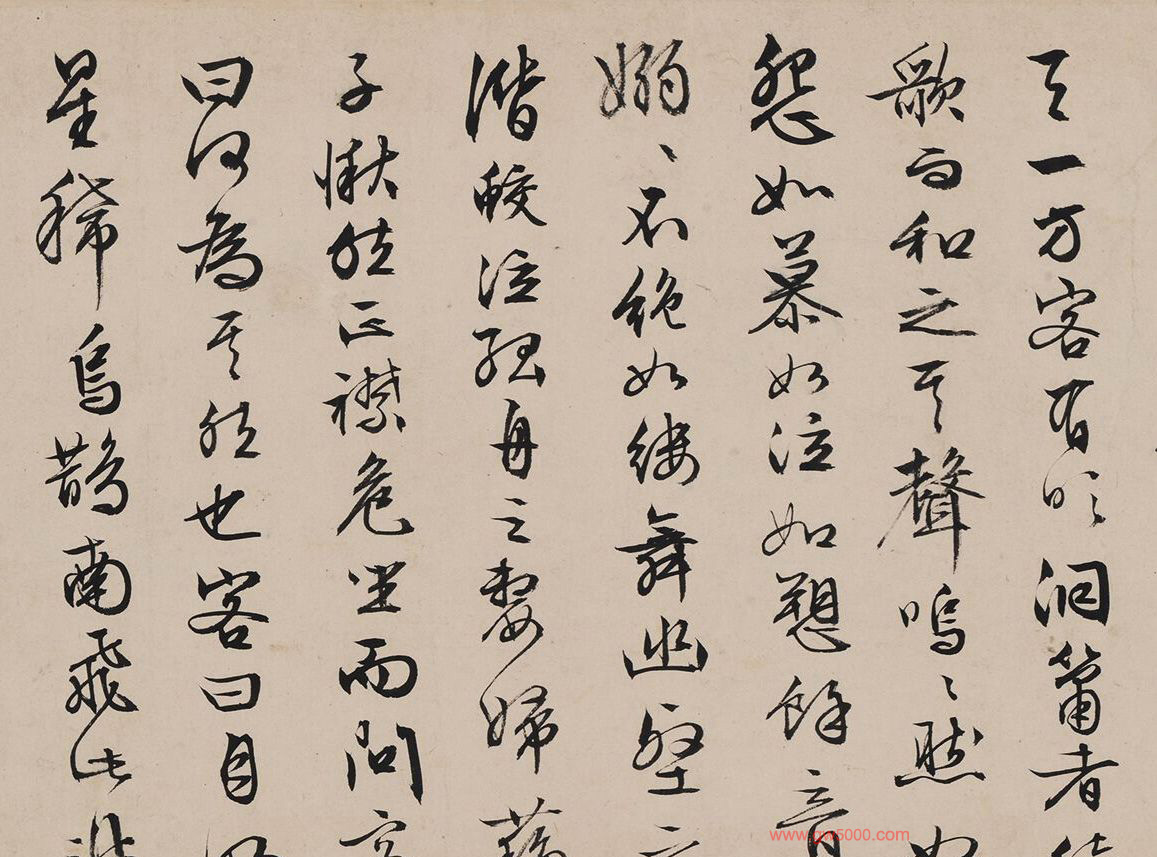 天一方客有吹洞簫者
歌而和之其聲嗚〻然如
怨如慕如泣如愬餘音
嫋〻不絕如縷舞幽壑
潛蛟泣孤舟之嫠婦蘇
子愀然正襟危坐而問
曰何為其然也客曰月
星稀烏鵲南飛此
www.gw5000.com